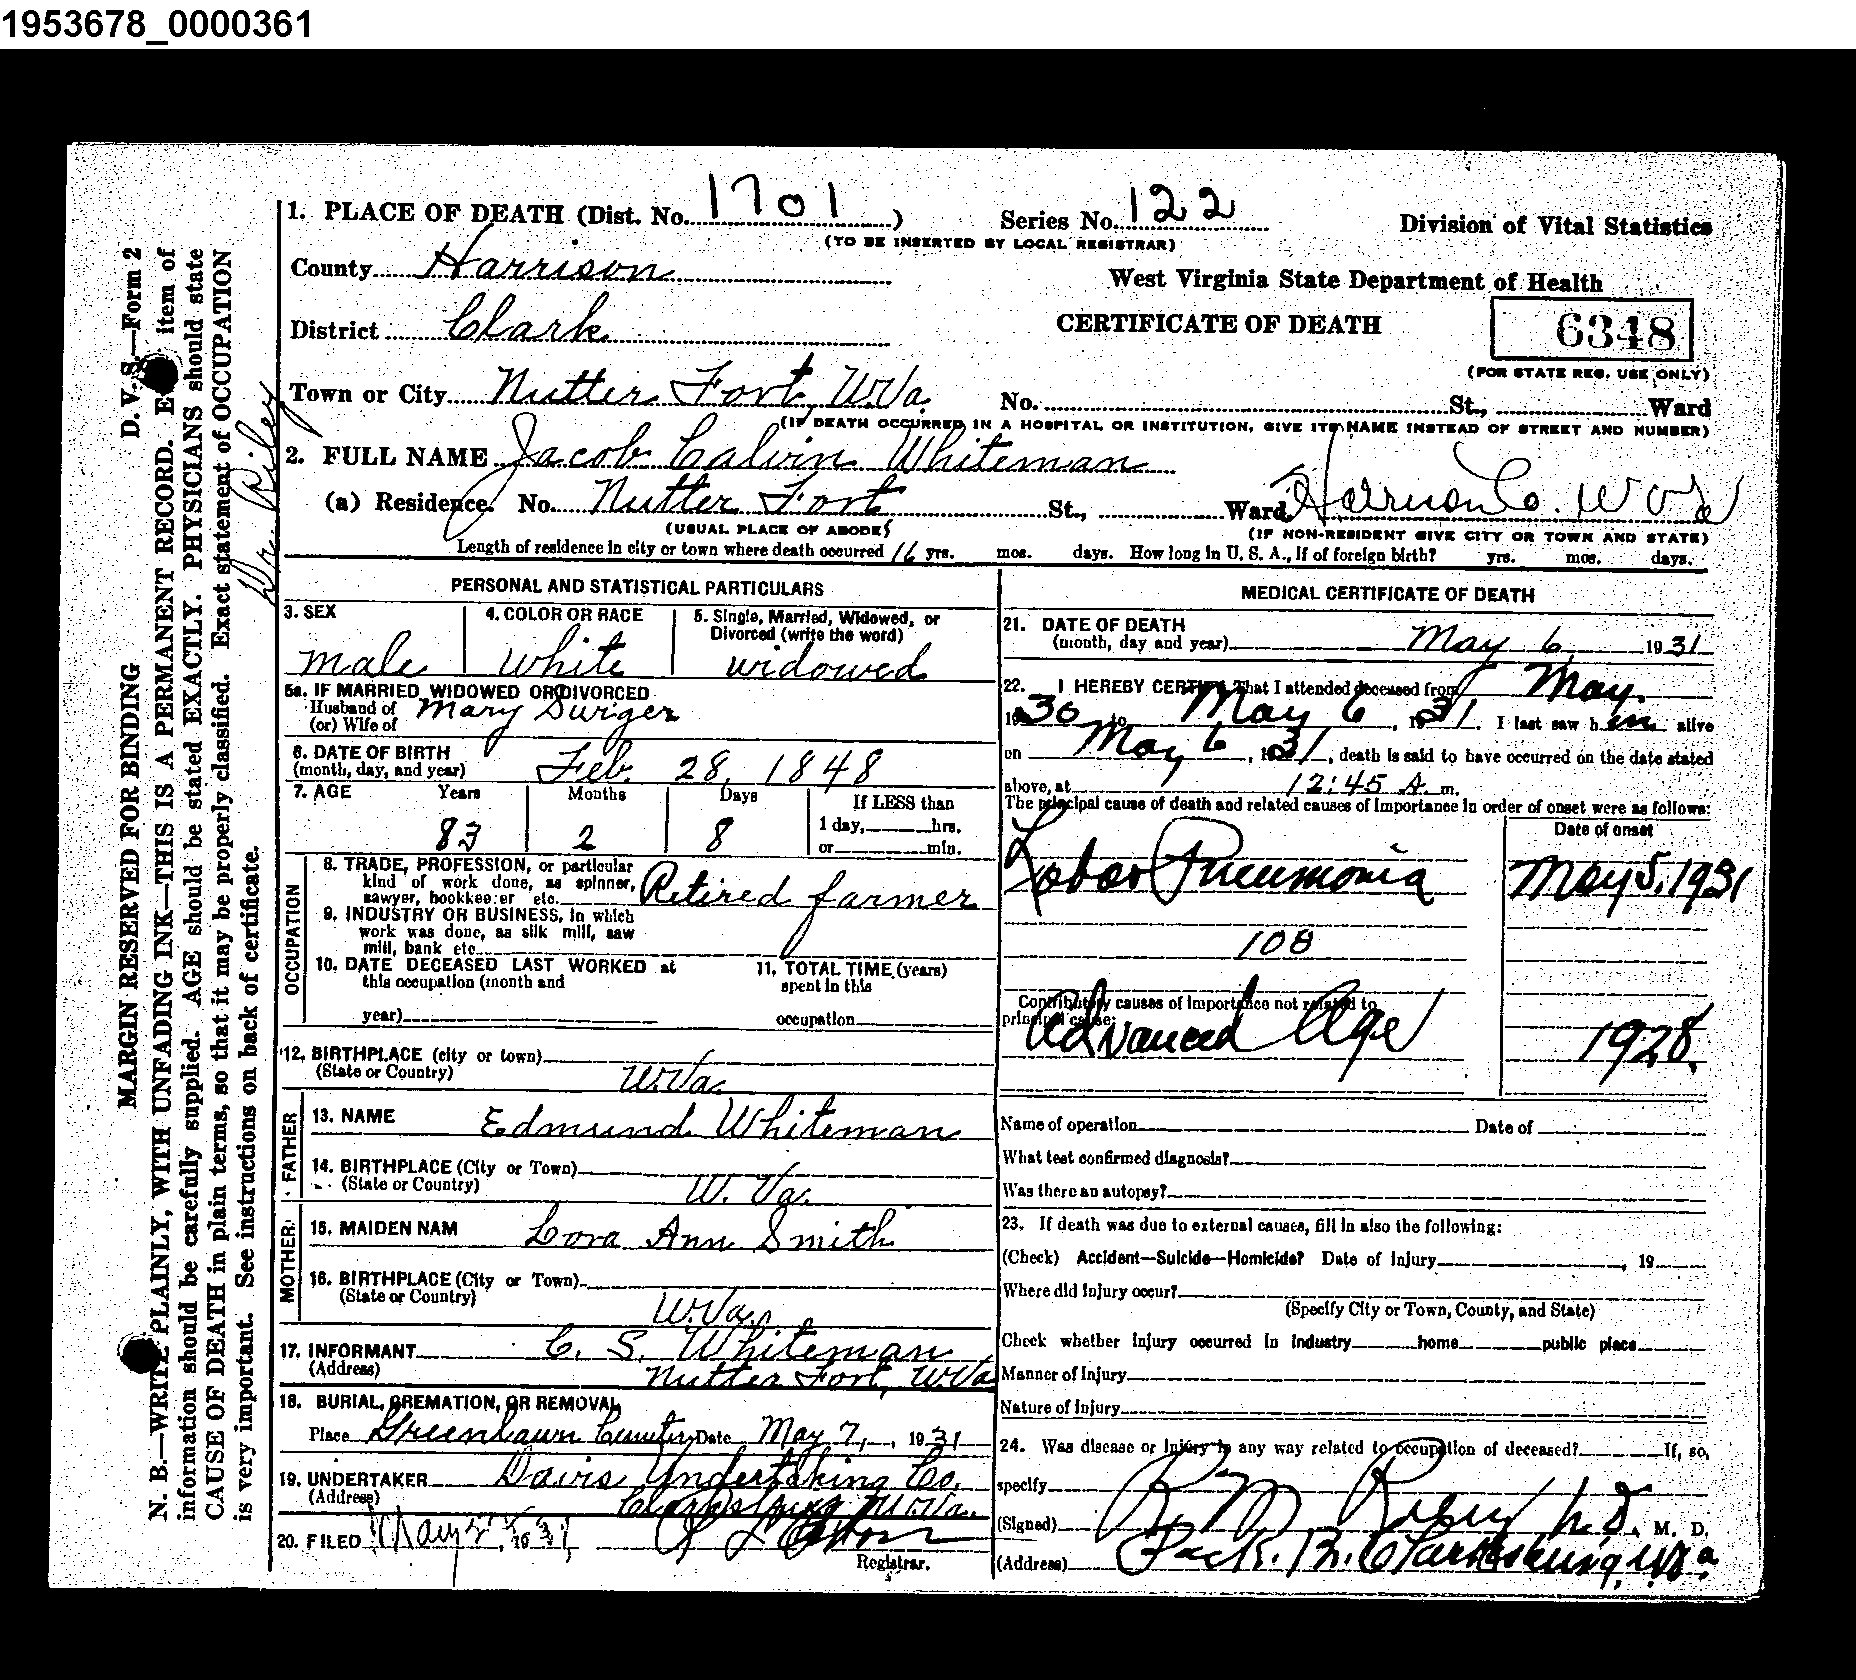 1953678_0000361
1. PLACE OF DEATH (Dist. No. 1701)
Series No. 122
Division of Vital Statistics
(TO BE INSERTED BY LOCAL REGISTRAR)
County Harrison
West Virginia State Department of Health
District Clark
CERTIFICATE OF DEATH
6348
(FOR STATE REG. USE ONLY)
Town or City Nutter Fort, W.Va.
No. St., Ward
(IF DEATH OCCURRED IN A HOSPITAL OR INSTITUTION, GIVE ITS NAME INSTEAD OF STREET AND NUMBER)
2. FULL NAME Jacob Calvin Whiteman
(a) Residence. No. Nutter Fort St., Ward. Harrison Co. W Va
(USUAL PLACE OF ABODE)
(IF NON-RESIDENT GIVE CITY OR TOWN AND STATE)
Length of residence in city or town where death occurred 16 yrs. mos. days. How long in U. S. A., if of foreign birth? yrs. mos. days.
D. V. S.—Form 2
MARGIN RESERVED FOR BINDING
N. B.—WRITE PLAINLY, WITH UNFADING INK—THIS IS A PERMANENT RECORD. Every item of
information should be carefully supplied. AGE should be stated EXACTLY. PHYSICIANS should state
CAUSE OF DEATH in plain terms, so that it may be properly classified. Exact statement of OCCUPATION
is very important. See instructions on back of certificate.
Dr. Riley
PERSONAL AND STATISTICAL PARTICULARS
3. SEX
male
4. COLOR OR RACE
White
5. Single, Married, Widowed, or
Divorced (write the word)
widowed
5a. IF MARRIED, WIDOWED OR DIVORCED
Husband of Mary Swiger
(or) Wife of
6. DATE OF BIRTH
(month, day, and year) Feb. 28, 1848
7. AGE Years Months Days If LESS than
1 day, hrs.
83 2 8 or min.
OCCUPATION
8. TRADE, PROFESSION, or particular
kind of work done, as spinner,
sawyer, bookkeeper etc. Retired farmer
9. INDUSTRY OR BUSINESS, in which
work was done, as silk mill, saw
mill, bank etc.
10. DATE DECEASED LAST WORKED at
this occupation (month and
year)
11. TOTAL TIME (years)
spent in this
occupation
12. BIRTHPLACE (city or town)
(State or Country) W.Va.
FATHER
13. NAME Edmund Whiteman
14. BIRTHPLACE (City or Town)
(State or Country) W. Va.
MOTHER
15. MAIDEN NAM Lova Ann Smith
16. BIRTHPLACE (City or Town)
(State or Country) W.Va.
17. INFORMANT C. S. Whiteman
(Address) Nutter Fort, W.Va
18. BURIAL, CREMATION, OR REMOVAL
Place Greenlawn Cemetery Date May 7, 1931
19. UNDERTAKER Davis Undertaking Co.
(Address) Clarksburg W.Va.
20. FILED May 1931
Registrar.
MEDICAL CERTIFICATE OF DEATH
21. DATE OF DEATH
(month, day and year) May 6, 1931
22. I HEREBY CERTIFY, That I attended deceased from May
1930 to May 6, 1931. I last saw him alive
on May 6, 1931, death is said to have occurred on the date stated
above, at 12:45 A. m.
The principal cause of death and related causes of importance in order of onset were as follows:
Date of onset
Lobar Pneumonia May 5, 1931
108
Contributory causes of importance not related to
principal cause:
Advanced Age 1928
Name of operation Date of
What test confirmed diagnosis?
Was there an autopsy?
23. If death was due to external causes, fill in also the following:
(Check) Accident—Suicide—Homicide? Date of Injury , 19
Where did injury occur?
(Specify City or Town, County, and State)
Check whether injury occurred in industry home public place
Manner of Injury
Nature of Injury
24. Was disease or injury in any way related to occupation of deceased? If, so,
specify
(Signed) R. M. Riley M.D., M. D.
(Address) Clarksburg, W.Va.